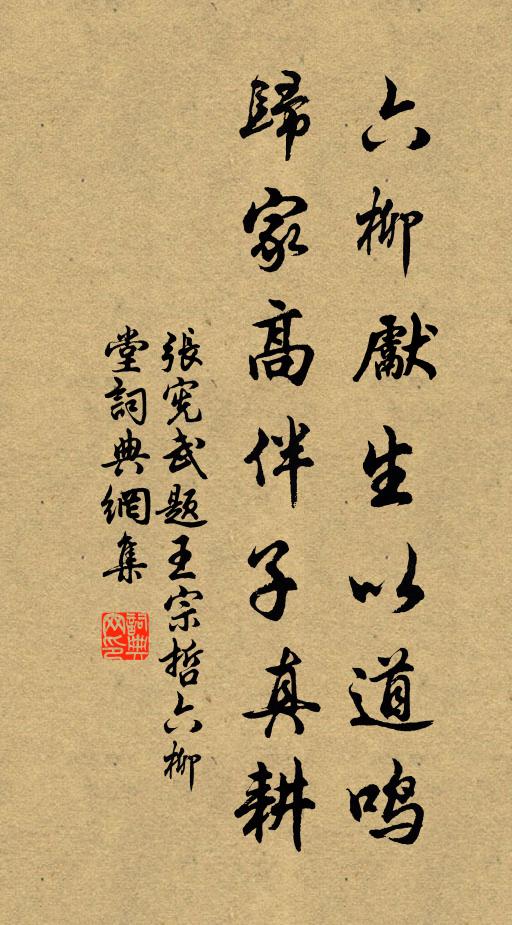 六柳獻生以道鸣
歸家高伴子真耕
張宪武题王宗哲六柳
堂詞典網集
詞典網印